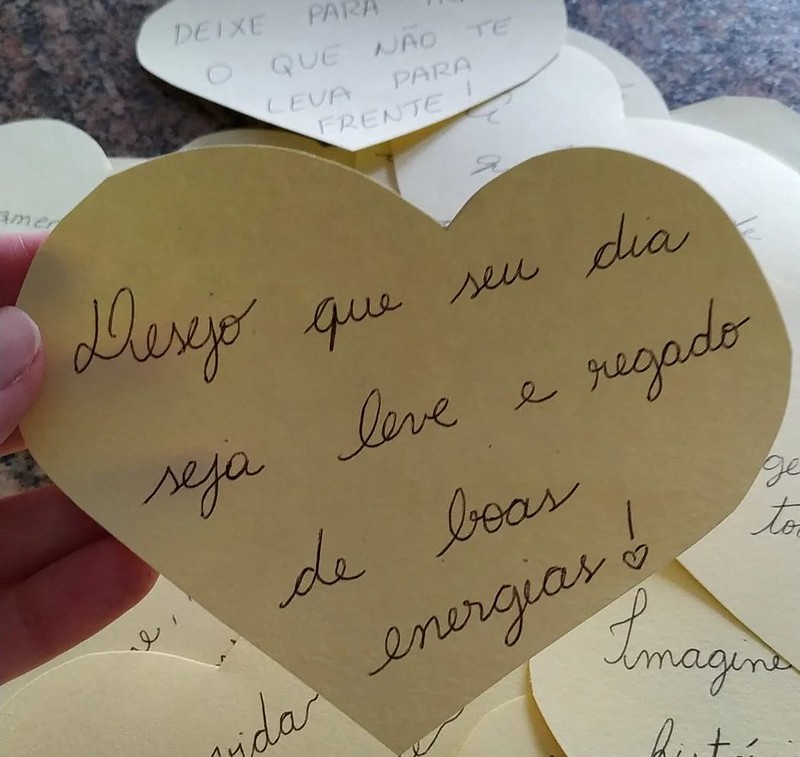 DEIXE PARA
O QUE NÃO TE
LEVA PARA
FRENTE!
Desejo que seu dia
seja leve e regado
de boas
energias!
Imagine
vida